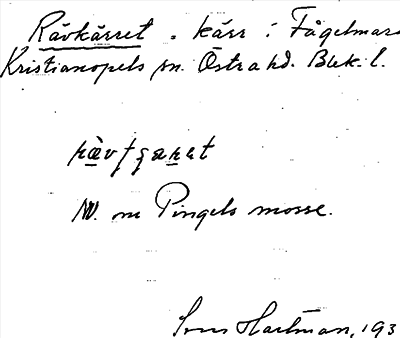 Rävkärret . kärr i Fågelmara
Kristianopels sn. Östra hd. Blek. l.
NV. om Pingels mosse.
Sven Hartman, 193